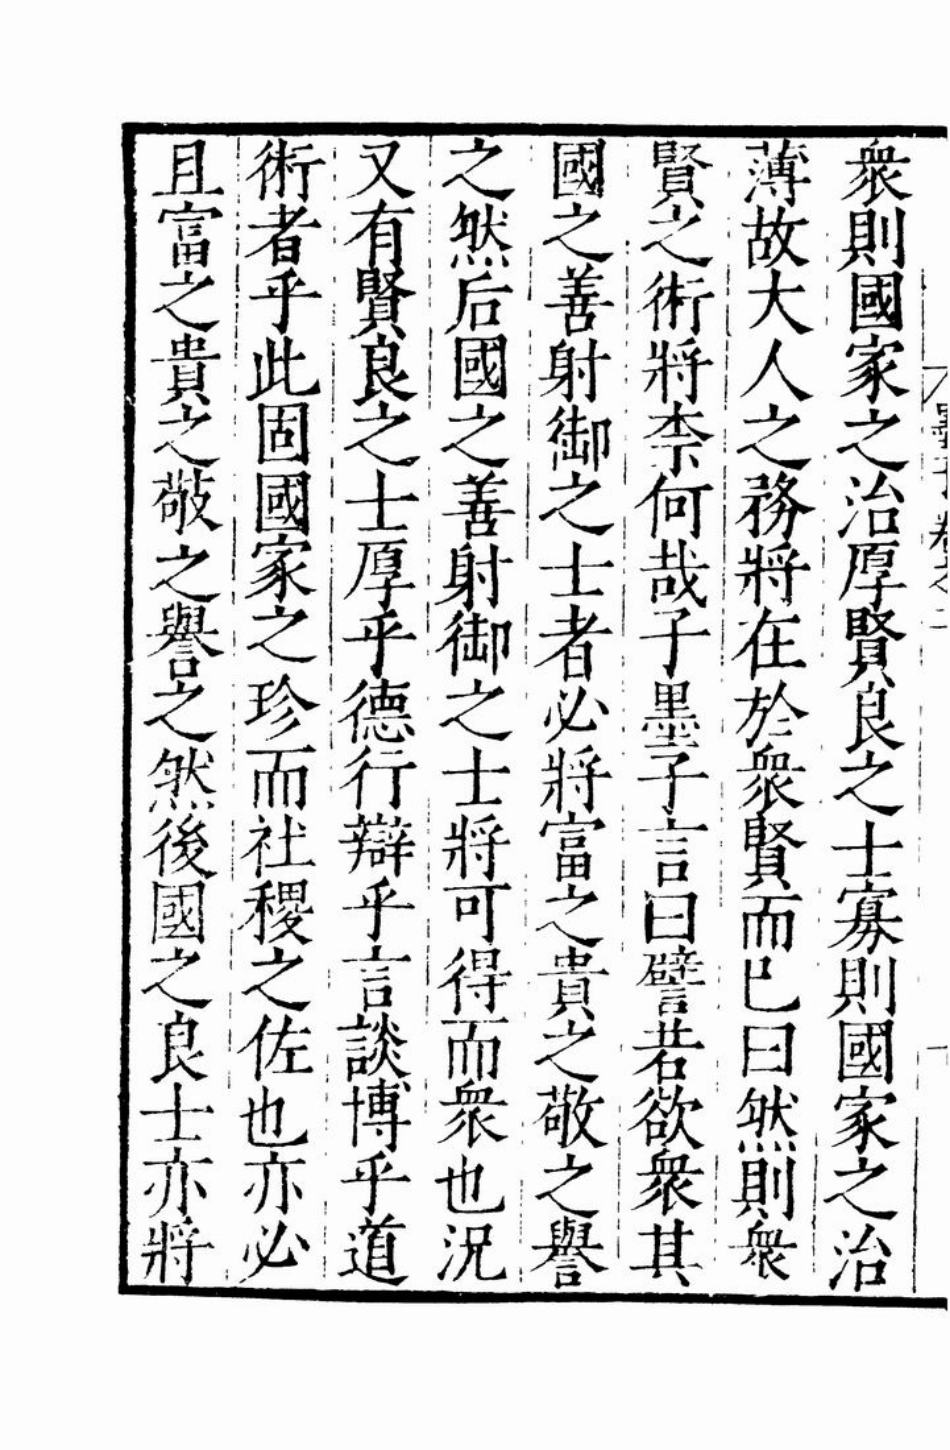 墨子卷之二
一
衆則國家之治厚賢良之士寡則國家之治
薄故大人之務將在於衆賢而已曰然則衆
賢之術將柰何哉子墨子言曰譬若欲衆其
國之善射御之士者必將富之貴之敬之譽
之然后國之善射御之士將可得而衆也況
又有賢良之士厚乎德行辯乎言談博乎道
術者乎此固國家之珍而社稷之佐也亦必
且富之貴之敬之譽之然後國之良士亦將